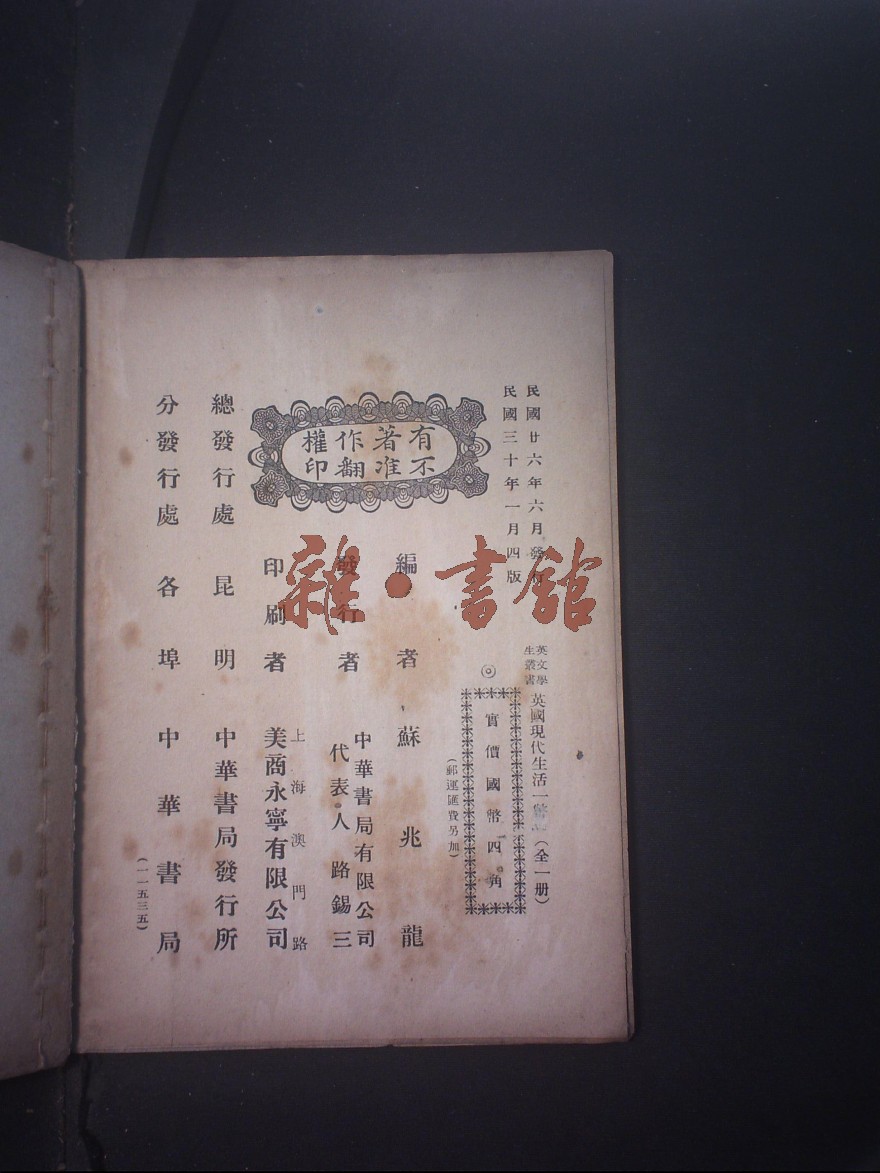 民國廿六年六月發行
民國三十年一月四版
英文學生叢書
英國現代生活一（全一册）
◎
實價國幣四角
（郵運匯費另加）
有著作權
不准翻印
編者 蘇兆龍
發行者 中華書局有限公司
代表人路錫三
印刷者 上海澳門路
美商永寧有限公司
總發行處 昆明 中華書局發行所
分發行處 各埠 中華書局
（一一五三五）
雜·書館